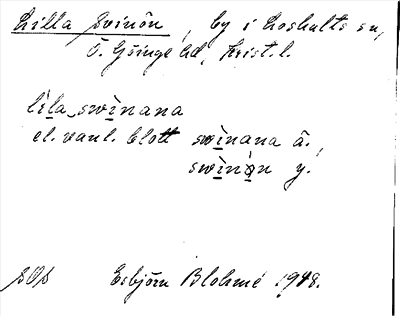 Lilla Svinön, by i Loshults sn,
Ö. Göinge hd, Krist. l.
lìla swìnana
el. vanl. blott swìnana ä.,
swìnòn y.
SOS Esbjörn Blohmé 1948.